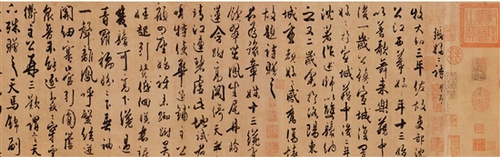 張好好詩并序
牧大和三年佐故吏部沈
公江西幕好好年十三始
以善歌舞來樂籍中
後一歲公鎮宣城復置好
好於宣城籍中後二年
沈著作述師以雙鬟納
之又二歲余於洛陽東
城重覩好好感舊傷懷
故題詩贈之
君為豫章姝十三纔有
餘翠茁鳳生尾丹臉
蓮含跗高閣倚天半
晴江連碧虛此地試君
唱特使華筵鋪主公
顧四座始訝來踟躕吳
娃起引贊低佪映長裾
雙鬟可高下纔過
青羅襦盼盼下垂袖
一聲離鳳呼繁絃迸
關紐塞管引圓蘆
眾音不能逐裊裊穿雲
衢主公再三歎謂言天
下殊贈之天馬錦副